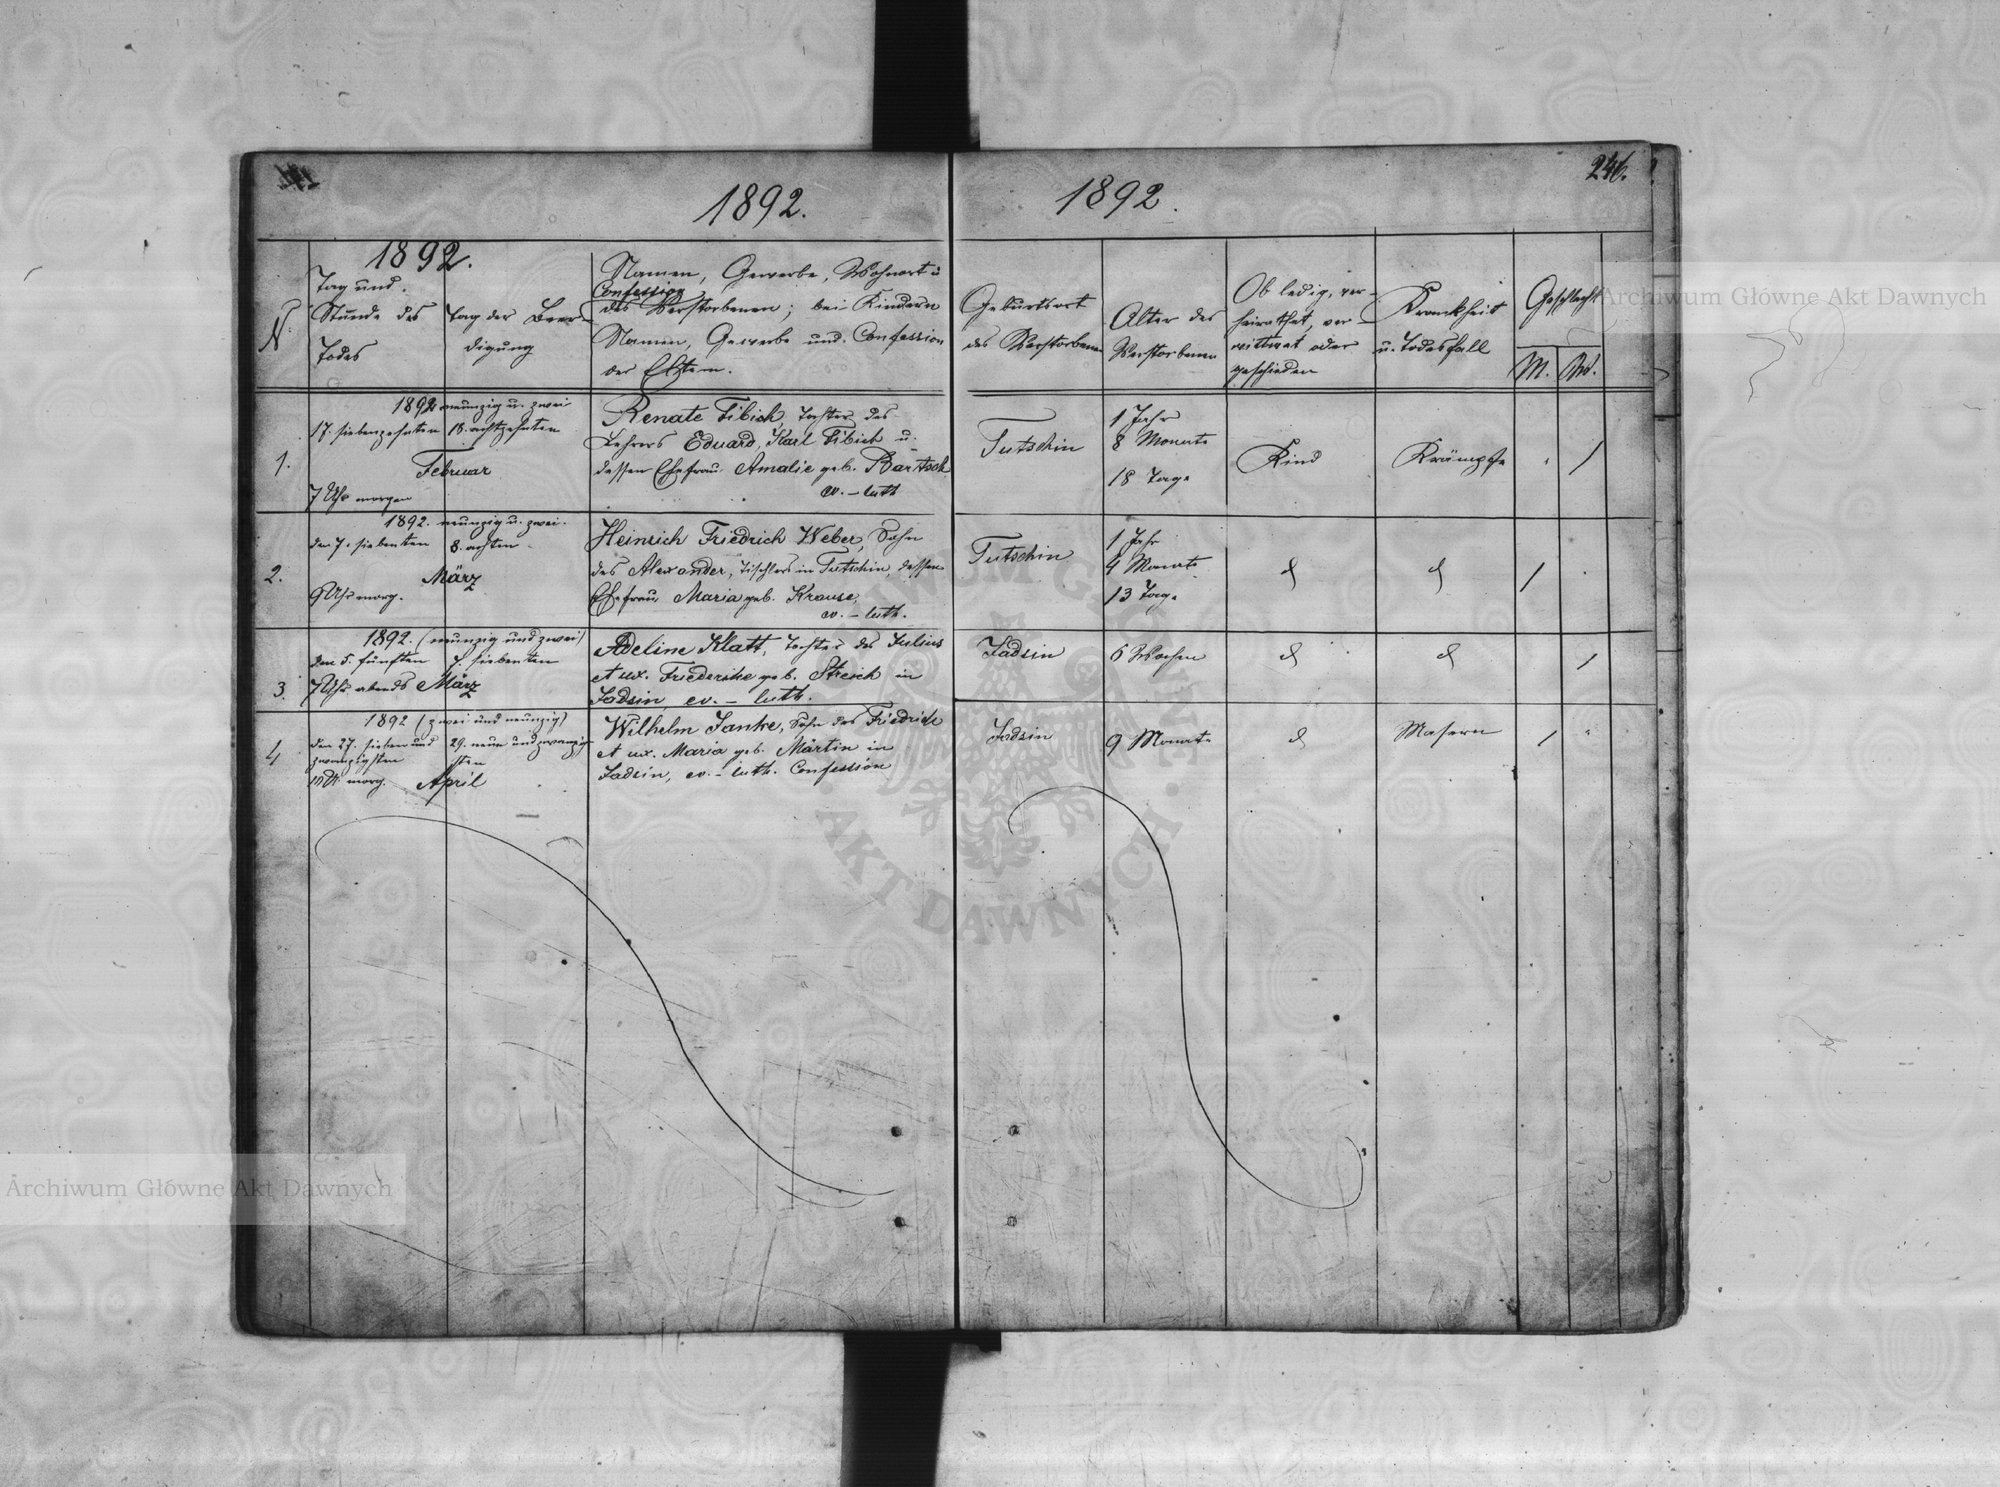 1892.
1892.
246.
1892.
Tag und
Stunde des
Todes
Tag der Beer-
digung
Namen, Gewerbe, Wohnort u
Confession
des Verstorbenen; bei Kindern
Namen, Gewerbe und Confession
der Eltern.
Geburtsort
des Verstorbenen
Alter des
Verstorbenen
Ob ledig, ver-
heirathet, ver-
wittwet oder
geschieden
Krankheit
u. Todesfall
Geschlecht
M. W.
1892 neunzig u. zwei
17. siebenzehnten 18. achtzehnten
1.
Februar
7 Uhr morgen
Renate Fibich, Tochter des
Lehrers Eduard, Karl Fibich u.
dessen Ehefrau Amalie geb. Bartsch
ev. - luth
Tutschin
1 Jahr
8 Monate
18 Tage
Kind
Krämpfe
1892. neunzig u. zwei.
den 7. siebenten 8. achten
2.
März
9 Uhr morg.
Heinrich Friedrich Weber, Sohn
des Alexander, Tischlers in Tutschin, dessen
Ehefrau Maria geb. Krause,
ev. - luth.
Tutschin
1 Jahr
4 Monate
13 Tage
1892. (neunzig und zwei)
den 5. fünften 7. siebenten
3. 7 Uhr abends März
Adeline Klatt, Tochter des Julius
et ux. Friederike geb. Streich in
Jadzin ev. - luth.
Jadzin
6 Wochen
1892 (zwei und neunzig)
den 27. sieben und 29. neun und zwanzig
zwanzigsten sten
4
10 U. morg. April
Wilhelm Janke, Sohn des Friedrich
et ux. Maria geb. Märtin in
Jadzin, ev. - luth. Confession
Jadzin
9 Monate
Masern
Archiwum Główne Akt Dawnych
Archiwum Główne Akt Dawnych
AKT DAWNYCH